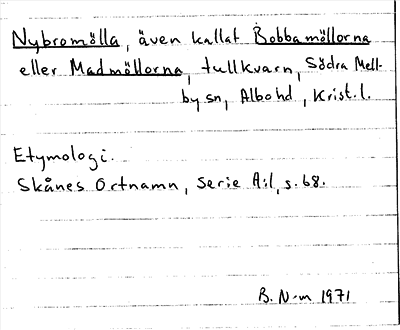 Nybromölla, även kallat Bobbamöllorna
eller Madmöllorna, tullkvarn, Södra Mell-
by sn, Albo hd, Krist. l.
Etymologi.
Skånes Ortnamn, serie A:1, s. 68.
B. N-m 1971